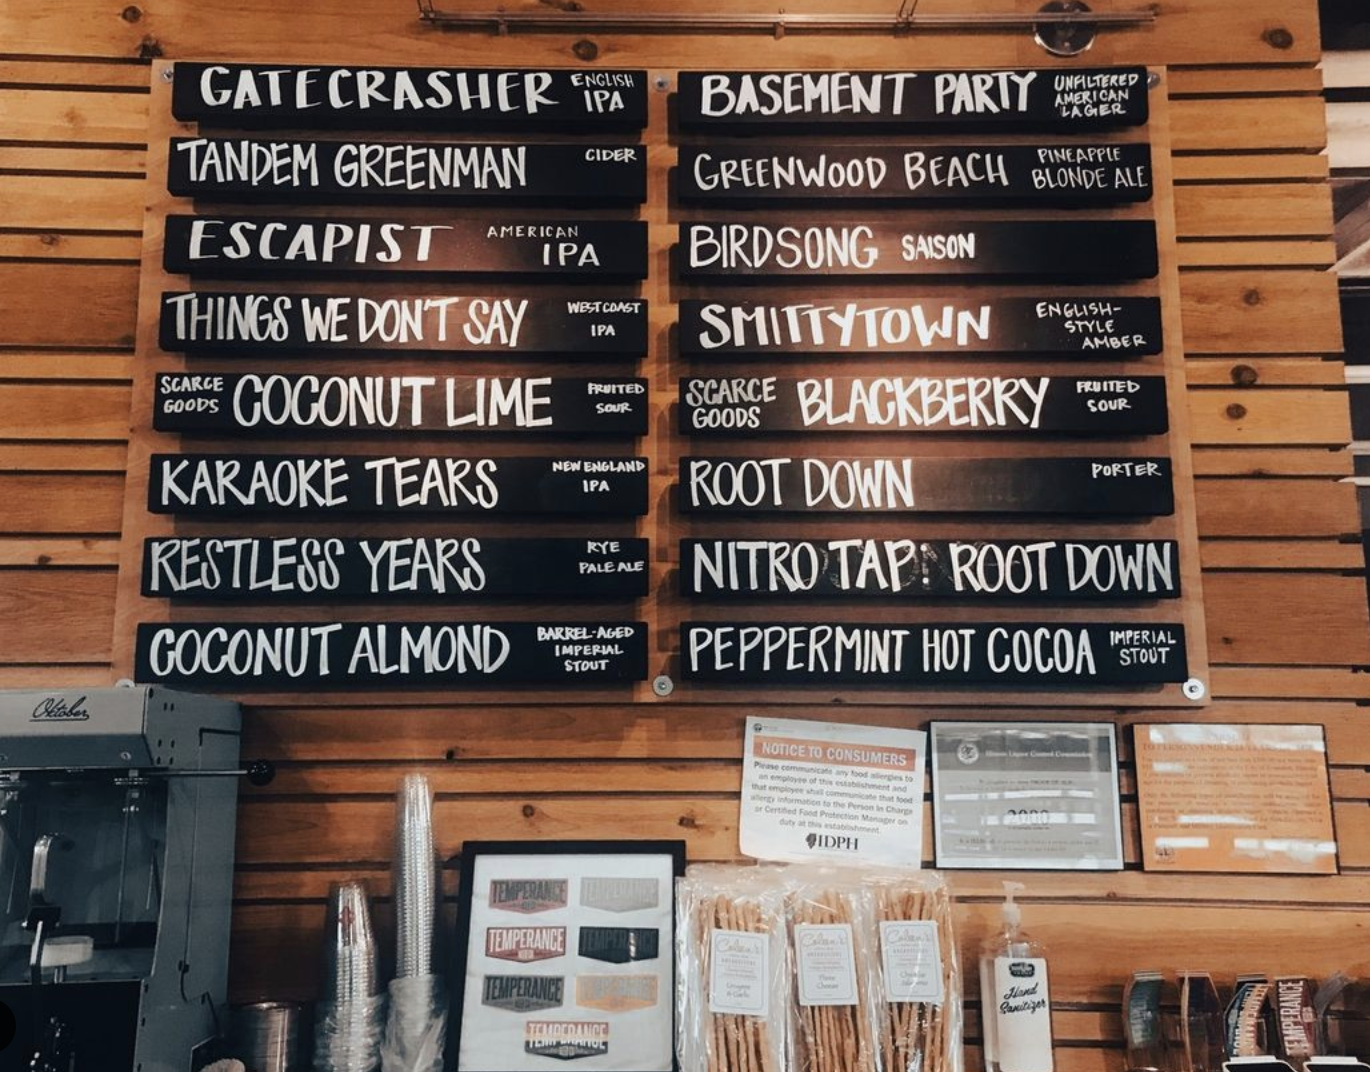 GATECRASHER ENGLISH IPA
TANDEM GREENMAN CIDER
ESCAPIST AMERICAN IPA
THINGS WE DON'T SAY WEST COAST IPA
SCARCE GOODS COCONUT LIME FRUITED SOUR
KARAOKE TEARS NEW ENGLAND IPA
RESTLESS YEARS RYE PALE ALE
COCONUT ALMOND BARREL-AGED IMPERIAL STOUT
BASEMENT PARTY UNFILTERED AMERICAN LAGER
GREENWOOD BEACH PINEAPPLE BLONDE ALE
BIRDSONG SAISON
SMITTYTOWN ENGLISH-STYLE AMBER
SCARCE GOODS BLACKBERRY FRUITED SOUR
ROOT DOWN PORTER
NITRO TAP: ROOT DOWN
PEPPERMINT HOT COCOA IMPERIAL STOUT
Oktober
NOTICE TO CONSUMERS
Please communicate any food allergies to
an employee of this establishment and
that employee shall communicate that food
allergy information to the Person In Charge
or Certified Food Protection Manager on
duty at this establishment.
IDPH
Illinois Liquor Control Commission
TEMPERANCE
TEMPERANCE
TEMPERANCE
TEMPERANCE
TEMPERANCE
TEMPERANCE
TEMPERANCE
Hand
Sanitizer
TEMPERANCE